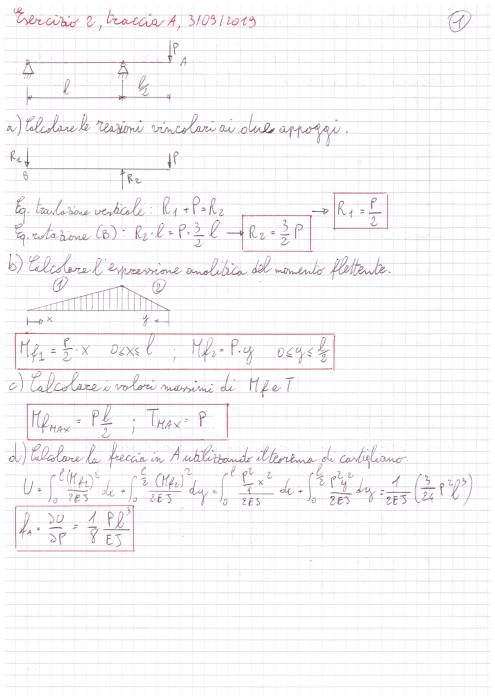 Esercizio 2, traccia A, 3/09/2019
1
P
A
l
l/2
a) Calcolare le reazioni vincolari ai due appoggi.
R2
P
B
R2
Eq. traslazione verticale: R1 + P = R2 → R1 = P/2
Eq. rotazione (B): R2 · l = P · 3/2 l → R2 = 3/2 P
b) Calcolare l'espressione analitica del momento flettente.
1 2
x y
Mf1 = P/2 · x 0≤x≤l ; Mf2 = P · y 0≤y≤l/2
c) Calcolare i valori massimi di Mf e T
MfMAX = P l/2 ; TMAX = P
d) Calcolare la freccia in A utilizzando il teorema di castigliano.
U = ∫₀^l (Mf1)²/2EJ dx + ∫₀^(l/2) (Mf2)²/2EJ dy = ∫₀^l (P²/4 x²)/2EJ dx + ∫₀^(l/2) P²y²/2EJ dy = 1/2EJ (3/24 P²l³)
fA = ∂U/∂P = 1/8 Pl³/EJ